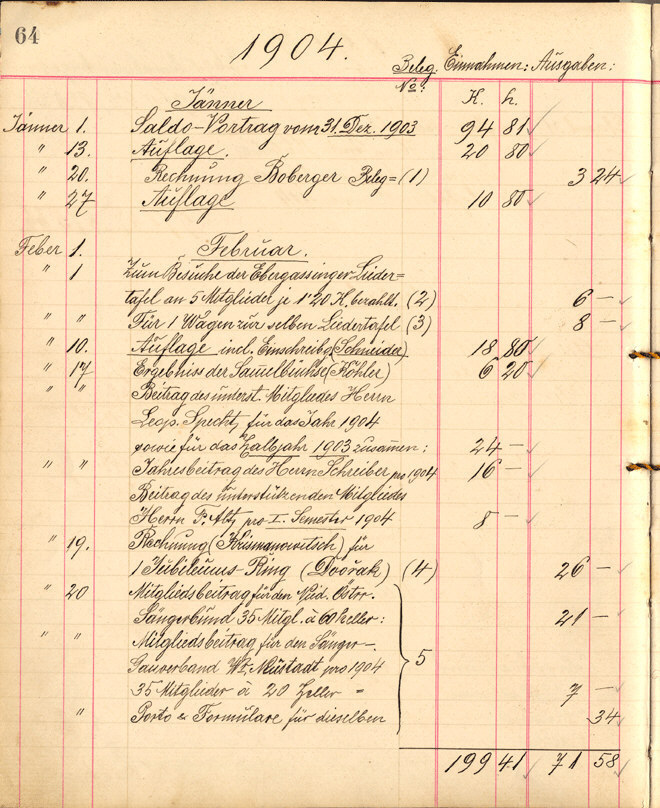 64
1904.
Beleg No: Einnahmen: Ausgaben:
Jänner K. h.
Jänner 1. Saldo-Vortrag vom 31. Dez. 1903 94 81
" 13. Auflage. 20 80
" 20. Rechnung Boberger Beleg = (1) 3 24
" 27 Auflage 10 80
Feber 1. Februar.
" 1 Zum Besuche der Ebergassinger Lieder=
tafel an 5 Mitglieder je 1˙20 K. bezahlt. (2) 6 —
" " Für 1 Wagen zur selben Liedertafel (3) 8 —
" 10. Auflage incl. Einschreibg (Schneider) 18 80
" 17. Ergebniss der Sam̅elbüchse (Köhler) 6 20
" " Beitrag des unterst. Mitgliedes Herrn
Leop. Specht, für das Jahr 1904
sowie für das Halbjahr 1903 zusam̅en: 24 —
" " Jahresbeitrag des Herrn Schreiber pro 1904 16 —
Beitrag des unterstützenden Mitgliedes
Herrn P. pro I. Semester 1904 8 —
" 19. Rechnung (Krismanowitsch) für
1 Jubiläums-Ring (Dvořak) (4) 26 —
" 20 Mitgliedsbeitrag für den Nied. Östrr.
Sängerbund 35 Mitgl. à 60 heller: 21 —
" " Mitgliedsbeitrag für den Sänger-
Gauverband Wr. Neustadt pro 1904 5
35 Mitglieder à 20 Heller = 7 —
" Porto & Formulare für dieselben 34
199 41 71 58